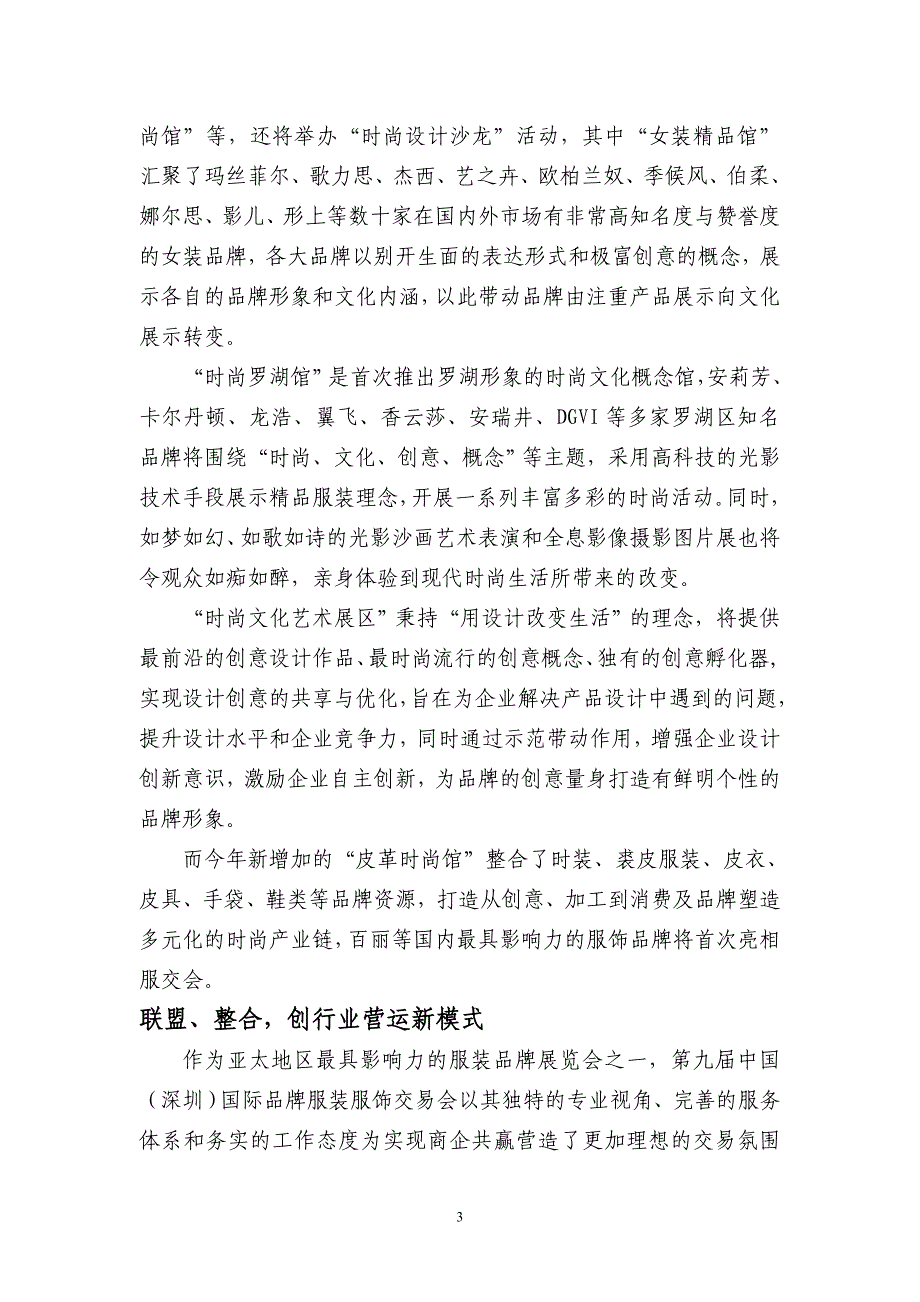 尚馆”等，还将举办“时尚设计沙龙”活动，其中“女装精品馆”
汇聚了玛丝菲尔、歌力思、杰西、艺之卉、欧柏兰奴、季候风、伯柔、
娜尔思、影儿、形上等数十家在国内外市场有非常高知名度与赞誉度
的女装品牌，各大品牌以别开生面的表达形式和极富创意的概念，展
示各自的品牌形象和文化内涵，以此带动品牌由注重产品展示向文化
展示转变。
“时尚罗湖馆”是首次推出罗湖形象的时尚文化概念馆，安莉芳、
卡尔丹顿、龙浩、翼飞、香云莎、安瑞井、DGVI 等多家罗湖区知名
品牌将围绕“时尚、文化、创意、概念”等主题，采用高科技的光影
技术手段展示精品服装理念，开展一系列丰富多彩的时尚活动。同时，
如梦如幻、如歌如诗的光影沙画艺术表演和全息影像摄影图片展也将
令观众如痴如醉，亲身体验到现代时尚生活所带来的改变。
“时尚文化艺术展区”秉持“用设计改变生活”的理念，将提供
最前沿的创意设计作品、最时尚流行的创意概念、独有的创意孵化器，
实现设计创意的共享与优化，旨在为企业解决产品设计中遇到的问题，
提升设计水平和企业竞争力，同时通过示范带动作用，增强企业设计
创新意识，激励企业自主创新，为品牌的创意量身打造有鲜明个性的
品牌形象。
而今年新增加的“皮革时尚馆”整合了时装、裘皮服装、皮衣、
皮具、手袋、鞋类等品牌资源，打造从创意、加工到消费及品牌塑造
多元化的时尚产业链，百丽等国内最具影响力的服饰品牌将首次亮相
服交会。
联盟、整合，创行业营运新模式
作为亚太地区最具影响力的服装品牌展览会之一，第九届中国
（深圳）国际品牌服装服饰交易会以其独特的专业视角、完善的服务
体系和务实的工作态度为实现商企共赢营造了更加理想的交易氛围
3